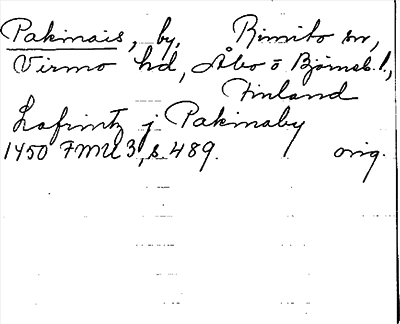 Pakinais, by, Rimito sn,
Virmo hd, Åbo o Björneb. l.,
Finland
Lafrintz j Pakinaby
1450 FMU 3, s. 489. orig.